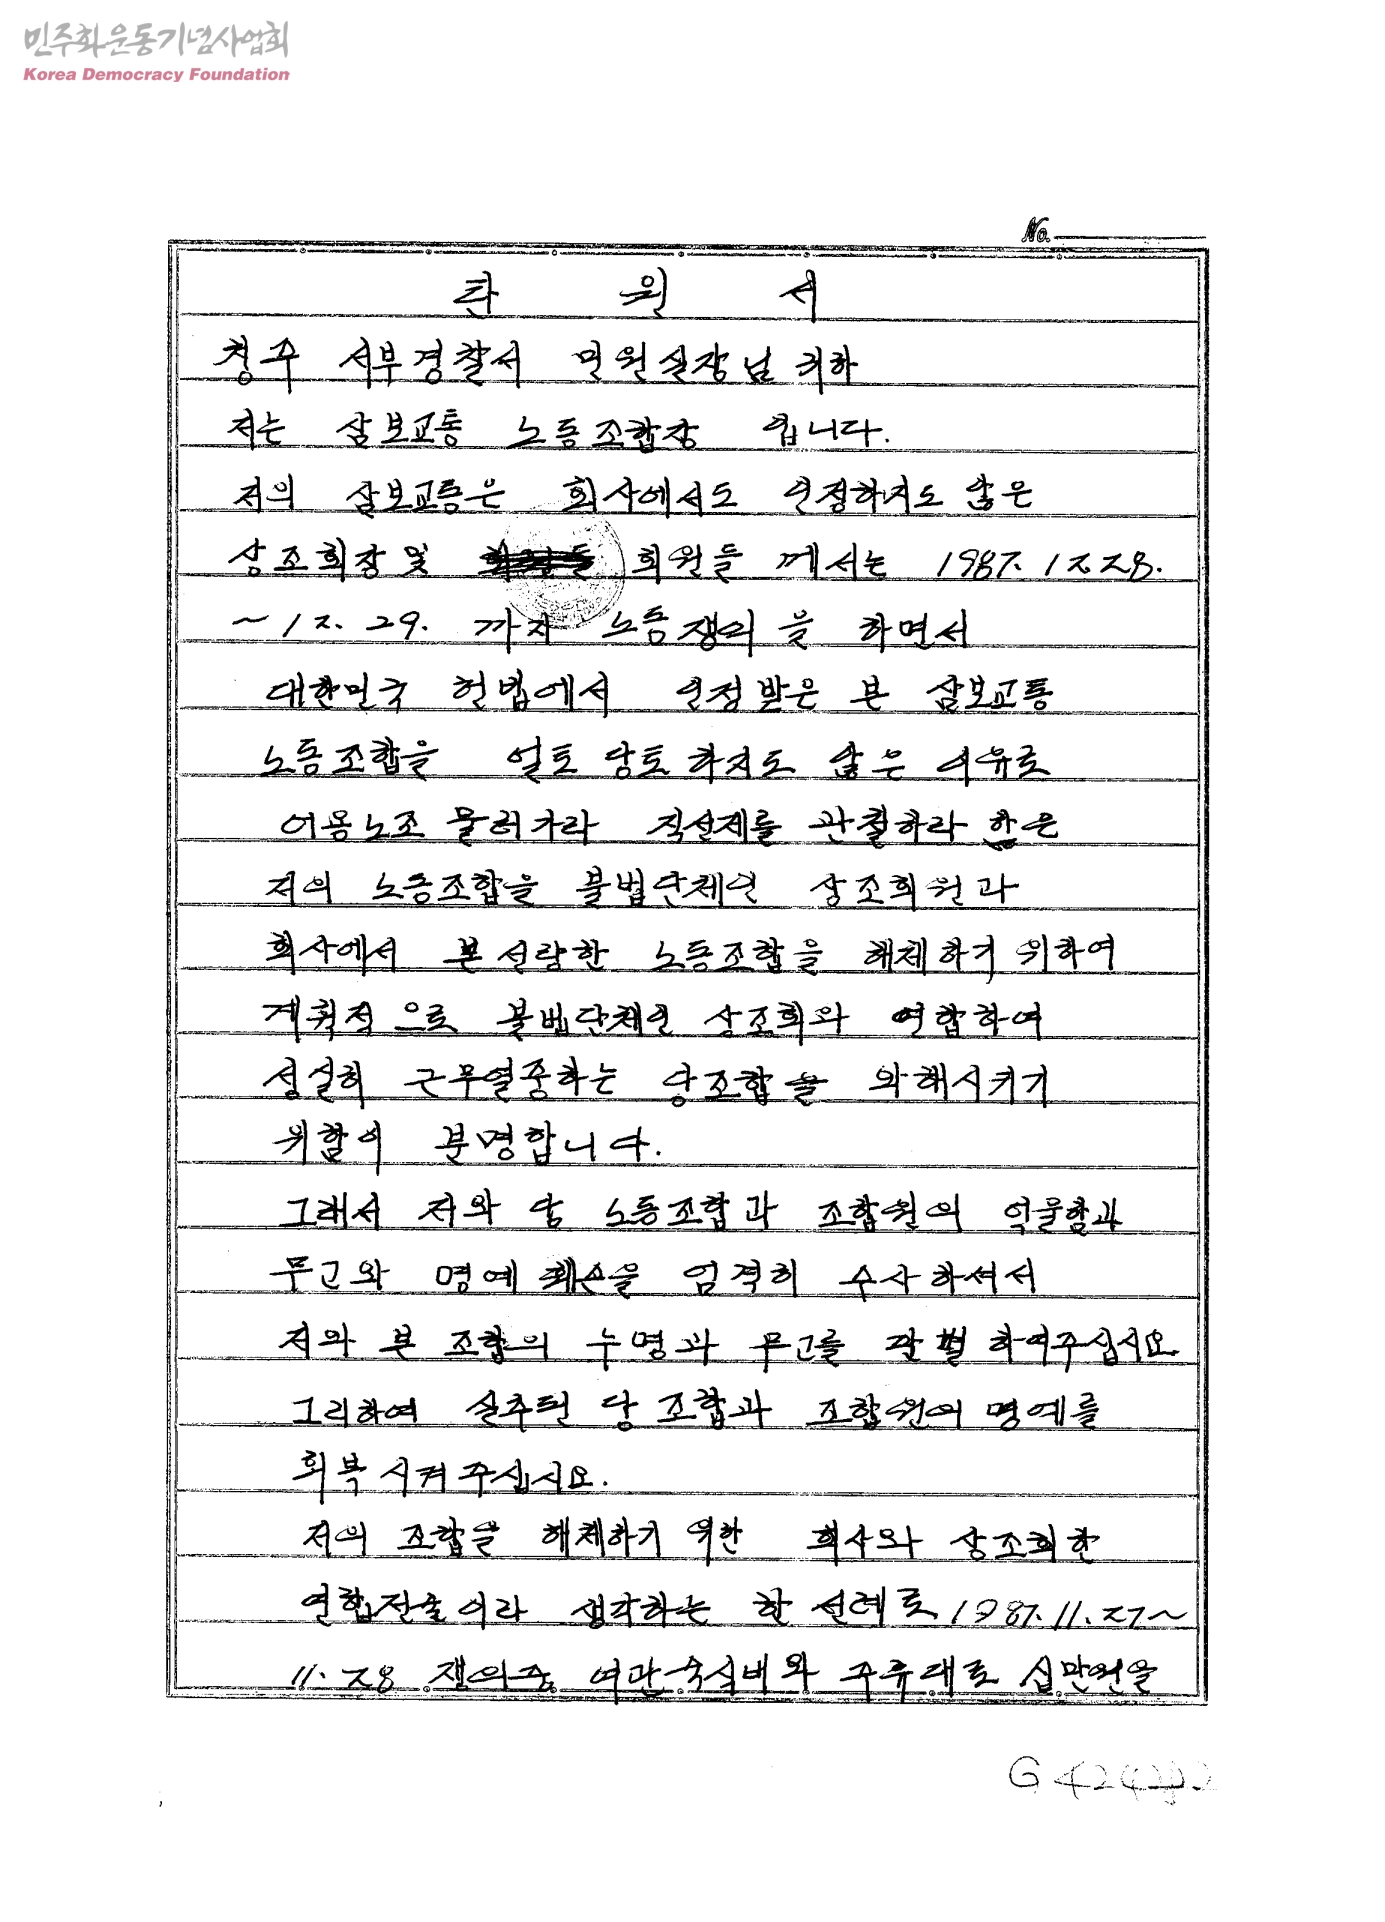 민주화운동기념사업회
Korea Democracy Foundation
No.
탄 원 서
청주 서부경찰서 민원실장님 귀하
저는 삼보교통 노동조합장 입니다.
저의 삼보교통은 회사에서도 인정하지도 않은
상조회장 및 회원들 께서는 1987. 12. 28.
~ 12. 29. 까지 노동쟁의 을 하면서
대한민국 헌법에서 인정받은 본 삼보교통
노동조합을 얼토 당토 하지도 않은 이유로
어용노조 물러가라 직선제를 관철하라 함은
저의 노동조합을 불법단체인 상조회원과
회사에서 본 선량한 노동조합을 해체하기 위하여
계획적 으로 불법단체인 상조회와 연합하여
성실히 근무열중하는 당조합을 와해시키기
위함이 분명합니다.
그래서 저와 당 노동조합과 조합원의 억울함과
무고와 명예 훼손을 엄격히 수사하셔서
저와 본 조합의 누명과 무고를 판별 하여주십시요
그리하여 실추된 당 조합과 조합원의 명예를
회복 시켜 주십시요.
저의 조합을 해체하기 위한 회사와 상조회한
연합전술이라 생각하는 한 선례로 1987. 11. 27 ~
11. 28 쟁의중 여관숙식비와 주류대로 십만원을